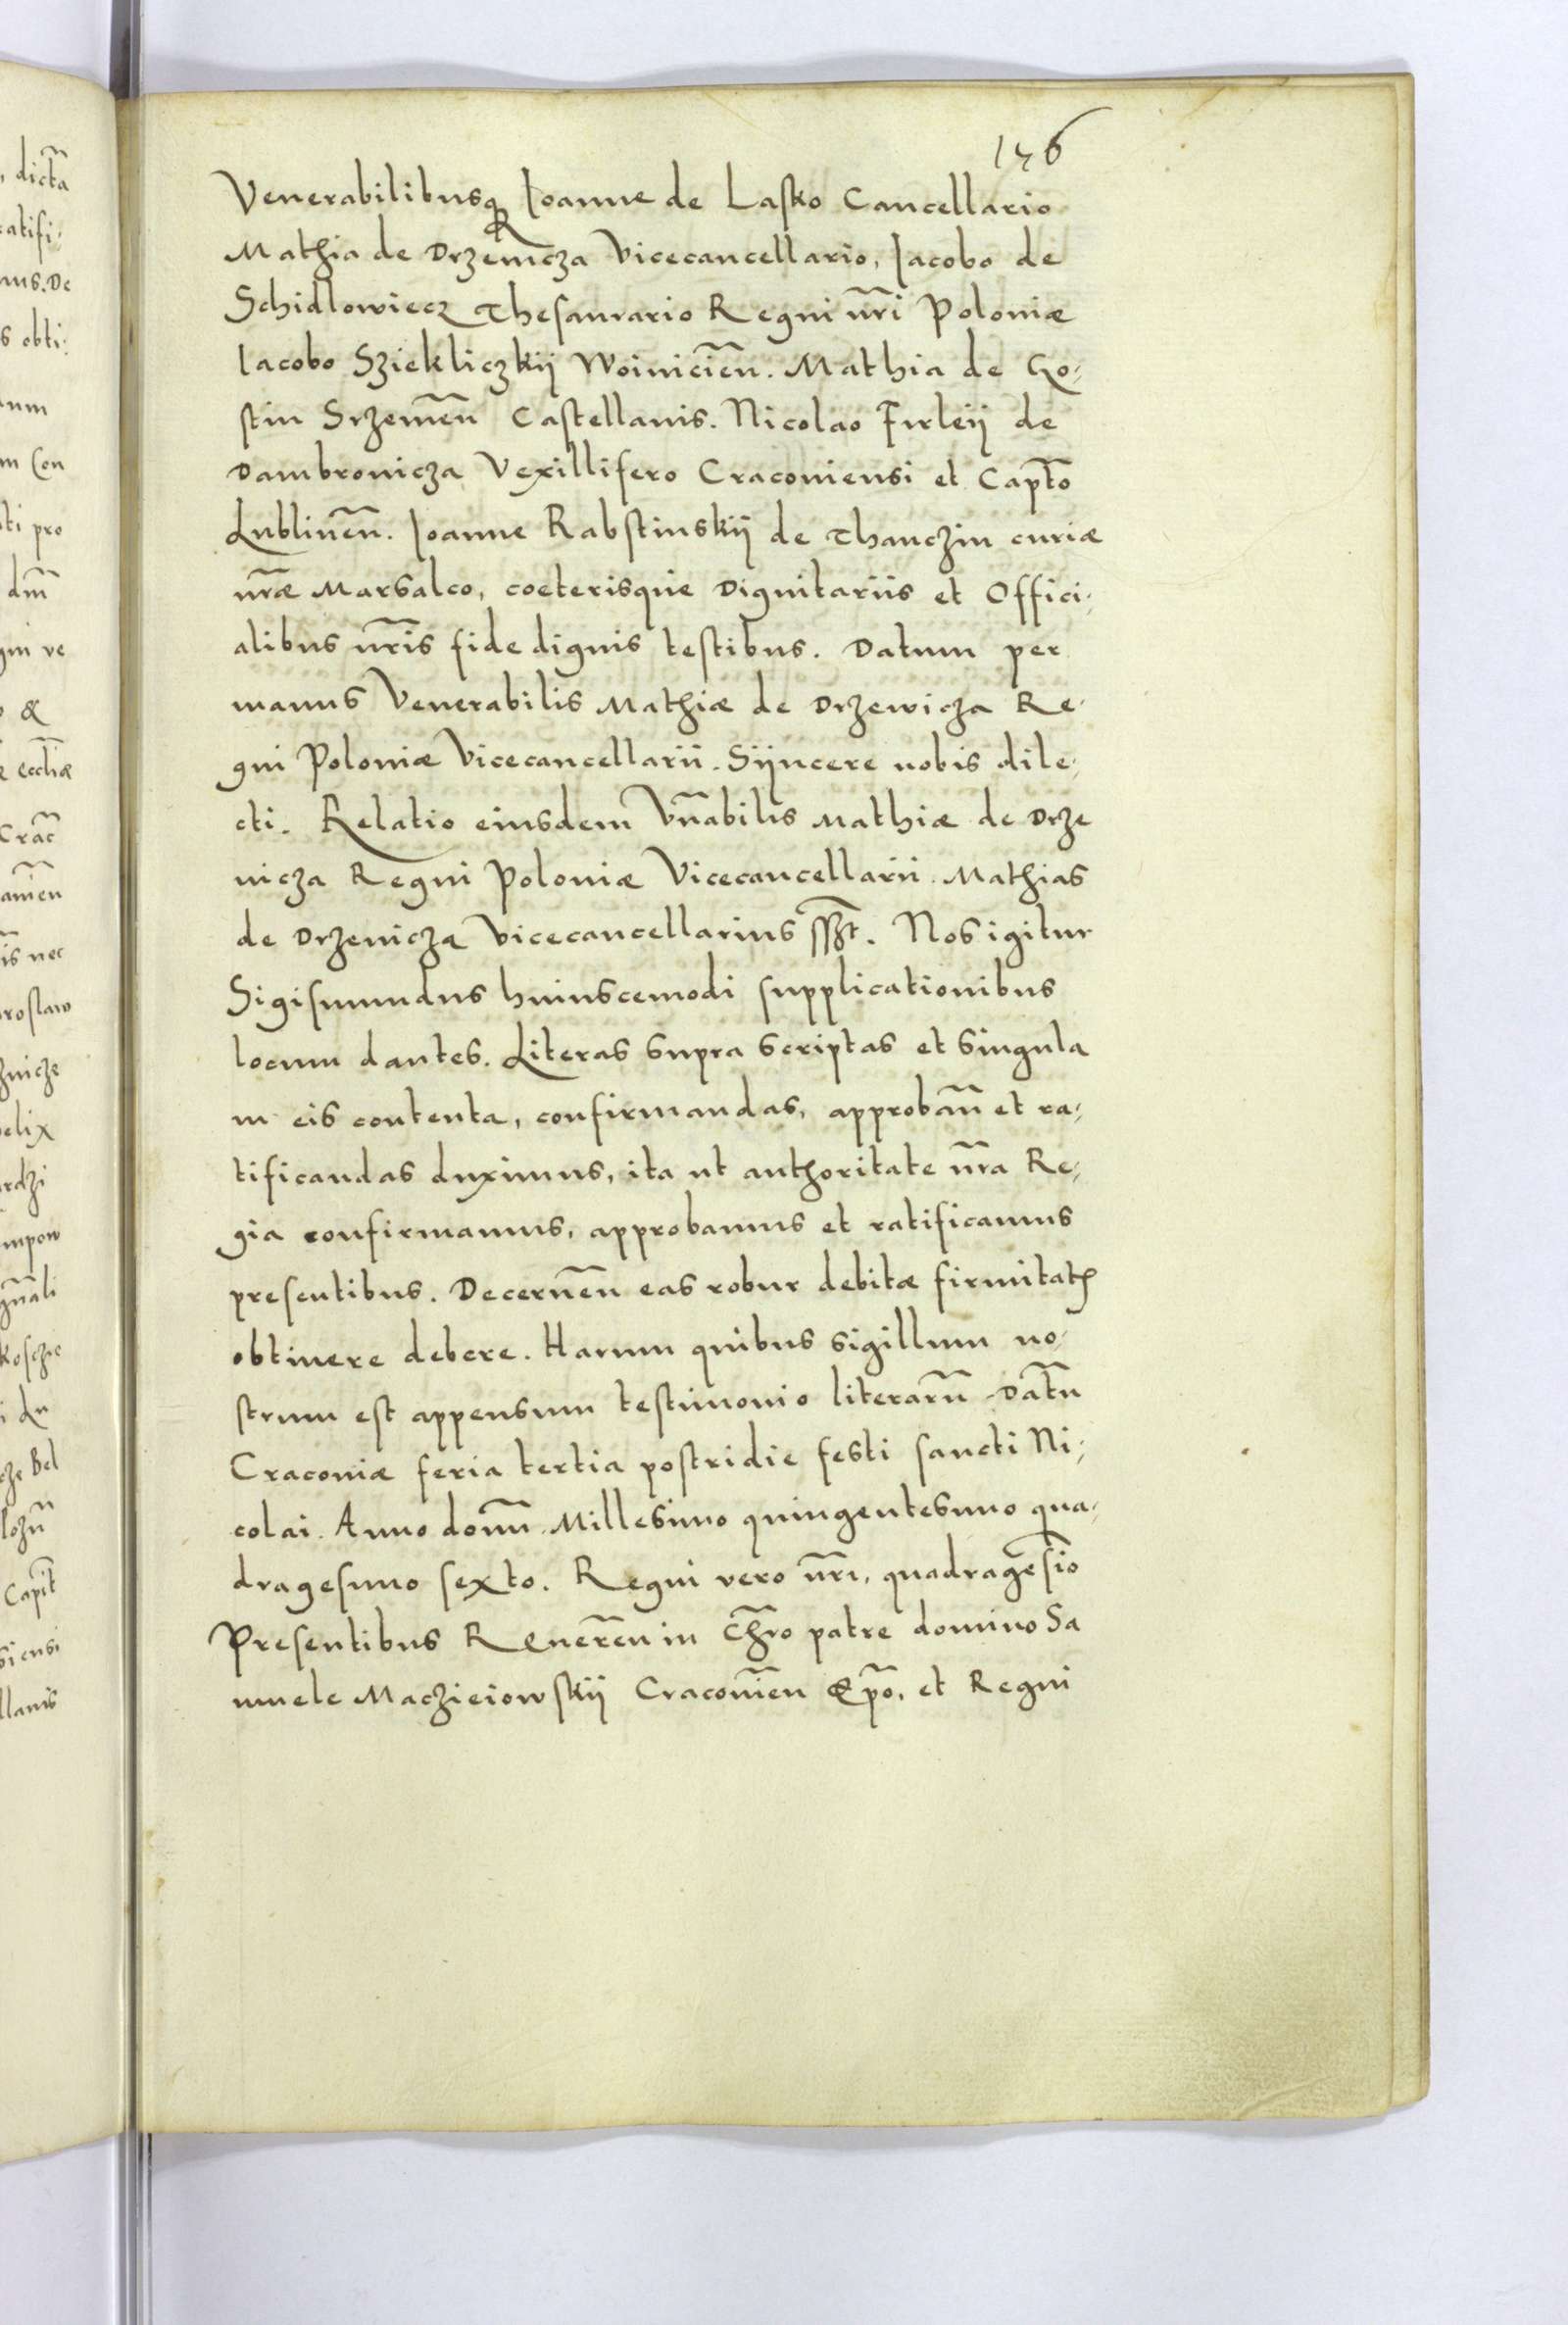 146
Venerabilibusq Joanne de Lasko Cancellario
Mathia de Drzewicza Vicecancellario, Jacobo de
Schidlowiecz Thesaurario Regni nr̃i Poloniæ
Iacobo Sziekliczkij Woiniciẽn. Mathia de Go⸗
stin Srzemẽn Castellanis. Nicolao Firleij de
Dambrouicza Vexillifero Cracouiensi et Capt̃o
Lublinẽn. Joanne Rabstinskij de Thanczin curiæ
nr̃æ Marsalco, coeterisque Dignitariis et Offici⸗
alibus nr̃is fide dignis testibus. Datum per
manus Venerabilis Mathiæ de Drzewicza Re⸗
gni Poloniæ Vicecancellarii. Sijncere nobis dile⸗
cti. Relatio eiusdem Vñabilis Mathiæ de Drze
uicza Regni Poloniæ Vicecancellarii. Mathias
de Drzeuicza Vicecancellarius sszt. Nos igitur
Sigismundus huiuscemodi supplicationibus
locum dantes. Literas supra scriptas et singula
in eis contenta, confirmandas, approbañ et ra⸗
tificandas duximus, ita ut authoritate nr̃a Re⸗
gia confirmamus, approbamus et ratificamus
presentibus. Decernẽn eas robur debitæ firmitatꝭ
obtinere debere. Harum quibus sigillum no⸗
strum est appensum testimonio literarũ. Datũ
Cracouiæ feria tertia postridie festi sancti Ni⸗
colai. Anno domñ. Millesimo quingentesimo qua⸗
dragesimo sexto. Regni vero nr̃i, quadragesĩo
Presentibus Reuerẽn in Chr̃o patre domino Sa
muele Maczieiowskij Cracouiẽn Ep̃o, et Regni
, dictã
ratifi⸗
mus. De
s obti⸗
m Con
ti pro
dm̃
gni ve
&
eccl̃iæ
Crac̃
nec
roslaw
elix
Bel
Capit̃
llanis